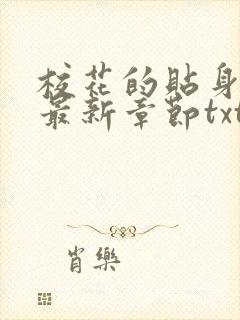 校花的貼身
最新章節txt
肖樂